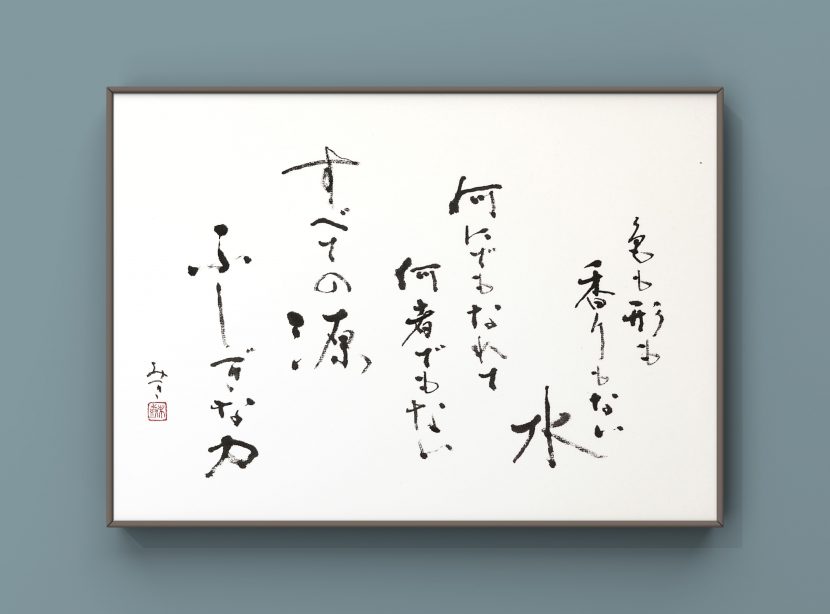 色も形も
香りもない
水
何にでもなれて
何者でもない
すべての源
ふしぎな力